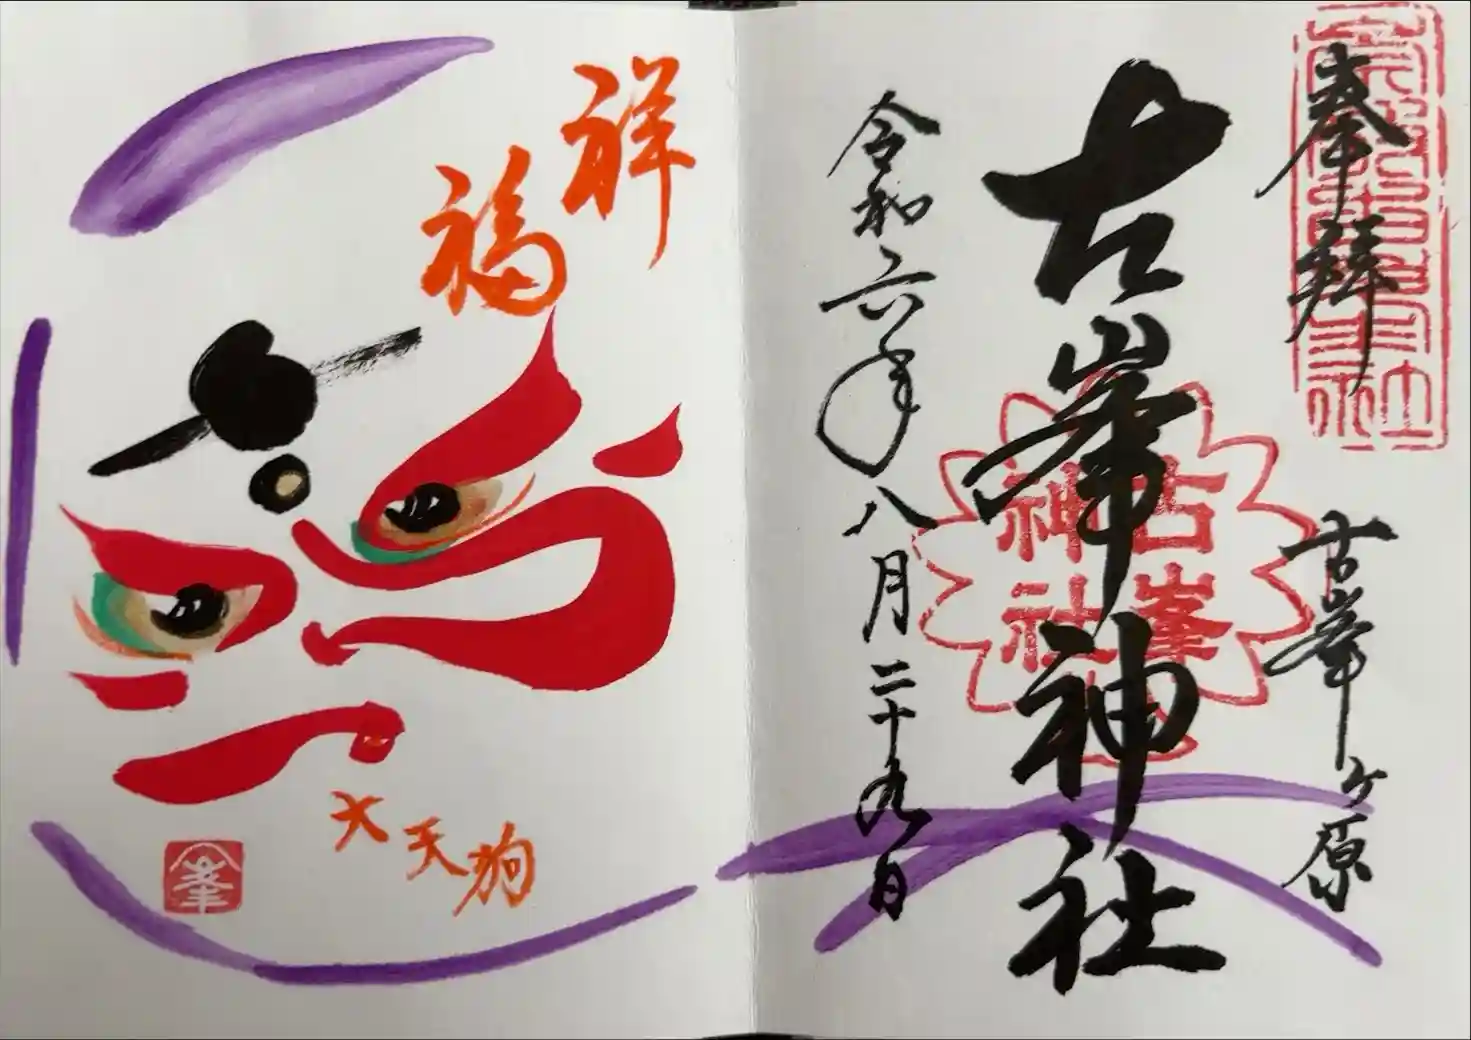 奉拝
古峯ヶ原
古峯神社
古峯
神社
令和六年八月二十九日
祥福
大天狗
峯